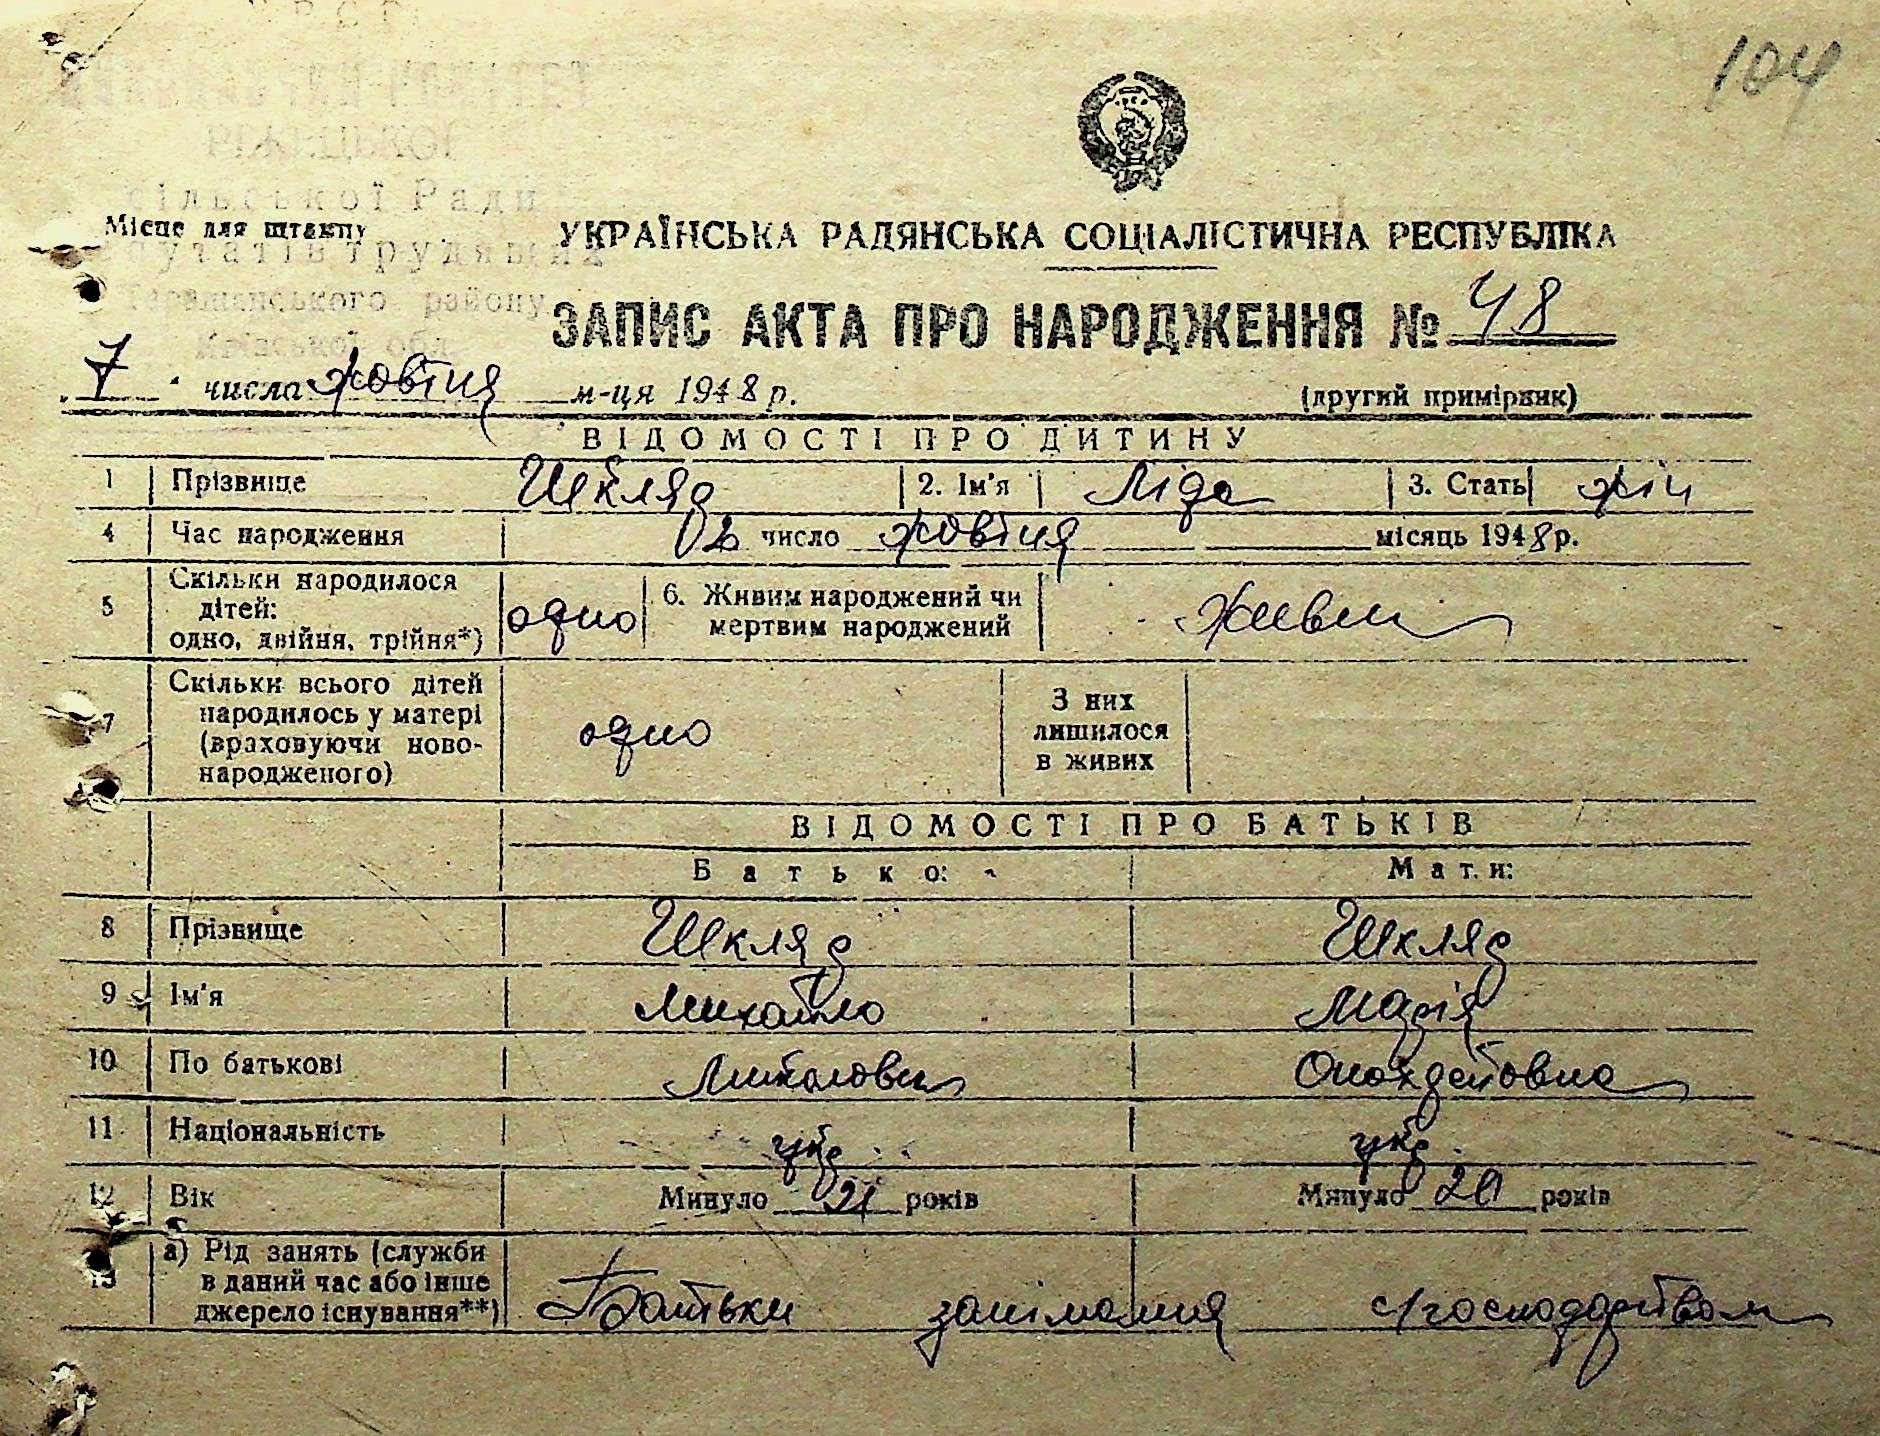 104
РІЖЕЦЬКОЇ
сільської Ради
Місце для штампу
трудящих
УКРАЇНСЬКА РАДЯНСЬКА СОЦІАЛІСТИЧНА РЕСПУБЛІКА
Таращанського району
Київської обл.
ЗАПИС АКТА ПРО НАРОДЖЕННЯ № 48
7 числа жовтня м-ця 1948 р. (другий примірник)
ВІДОМОСТІ ПРО ДИТИНУ
1 Прізвище Шкляр 2. Ім'я Ліда 3. Стать жін
4 Час народження 02 число жовтня місяць 1948 р.
5 Скільки народилося
дітей:
одно, двійня, трійня*) одно 6. Живим народжений чи
мертвим народжений Живим
7 Скільки всього дітей
народилось у матері
(враховуючи ново-
народженого) одно З них
лишилося
в живих
ВІДОМОСТІ ПРО БАТЬКІВ
Батько: Мати:
8 Прізвище Шкляр Шкляр
9 Ім'я Михайло Марія
10 По батькові
11 Національність укр укр
12 Вік Минуло 21 років Минуло 20 років
13 а) Рід занять (служби
в даний час або інше
джерело існування**) Батьки с/господарством